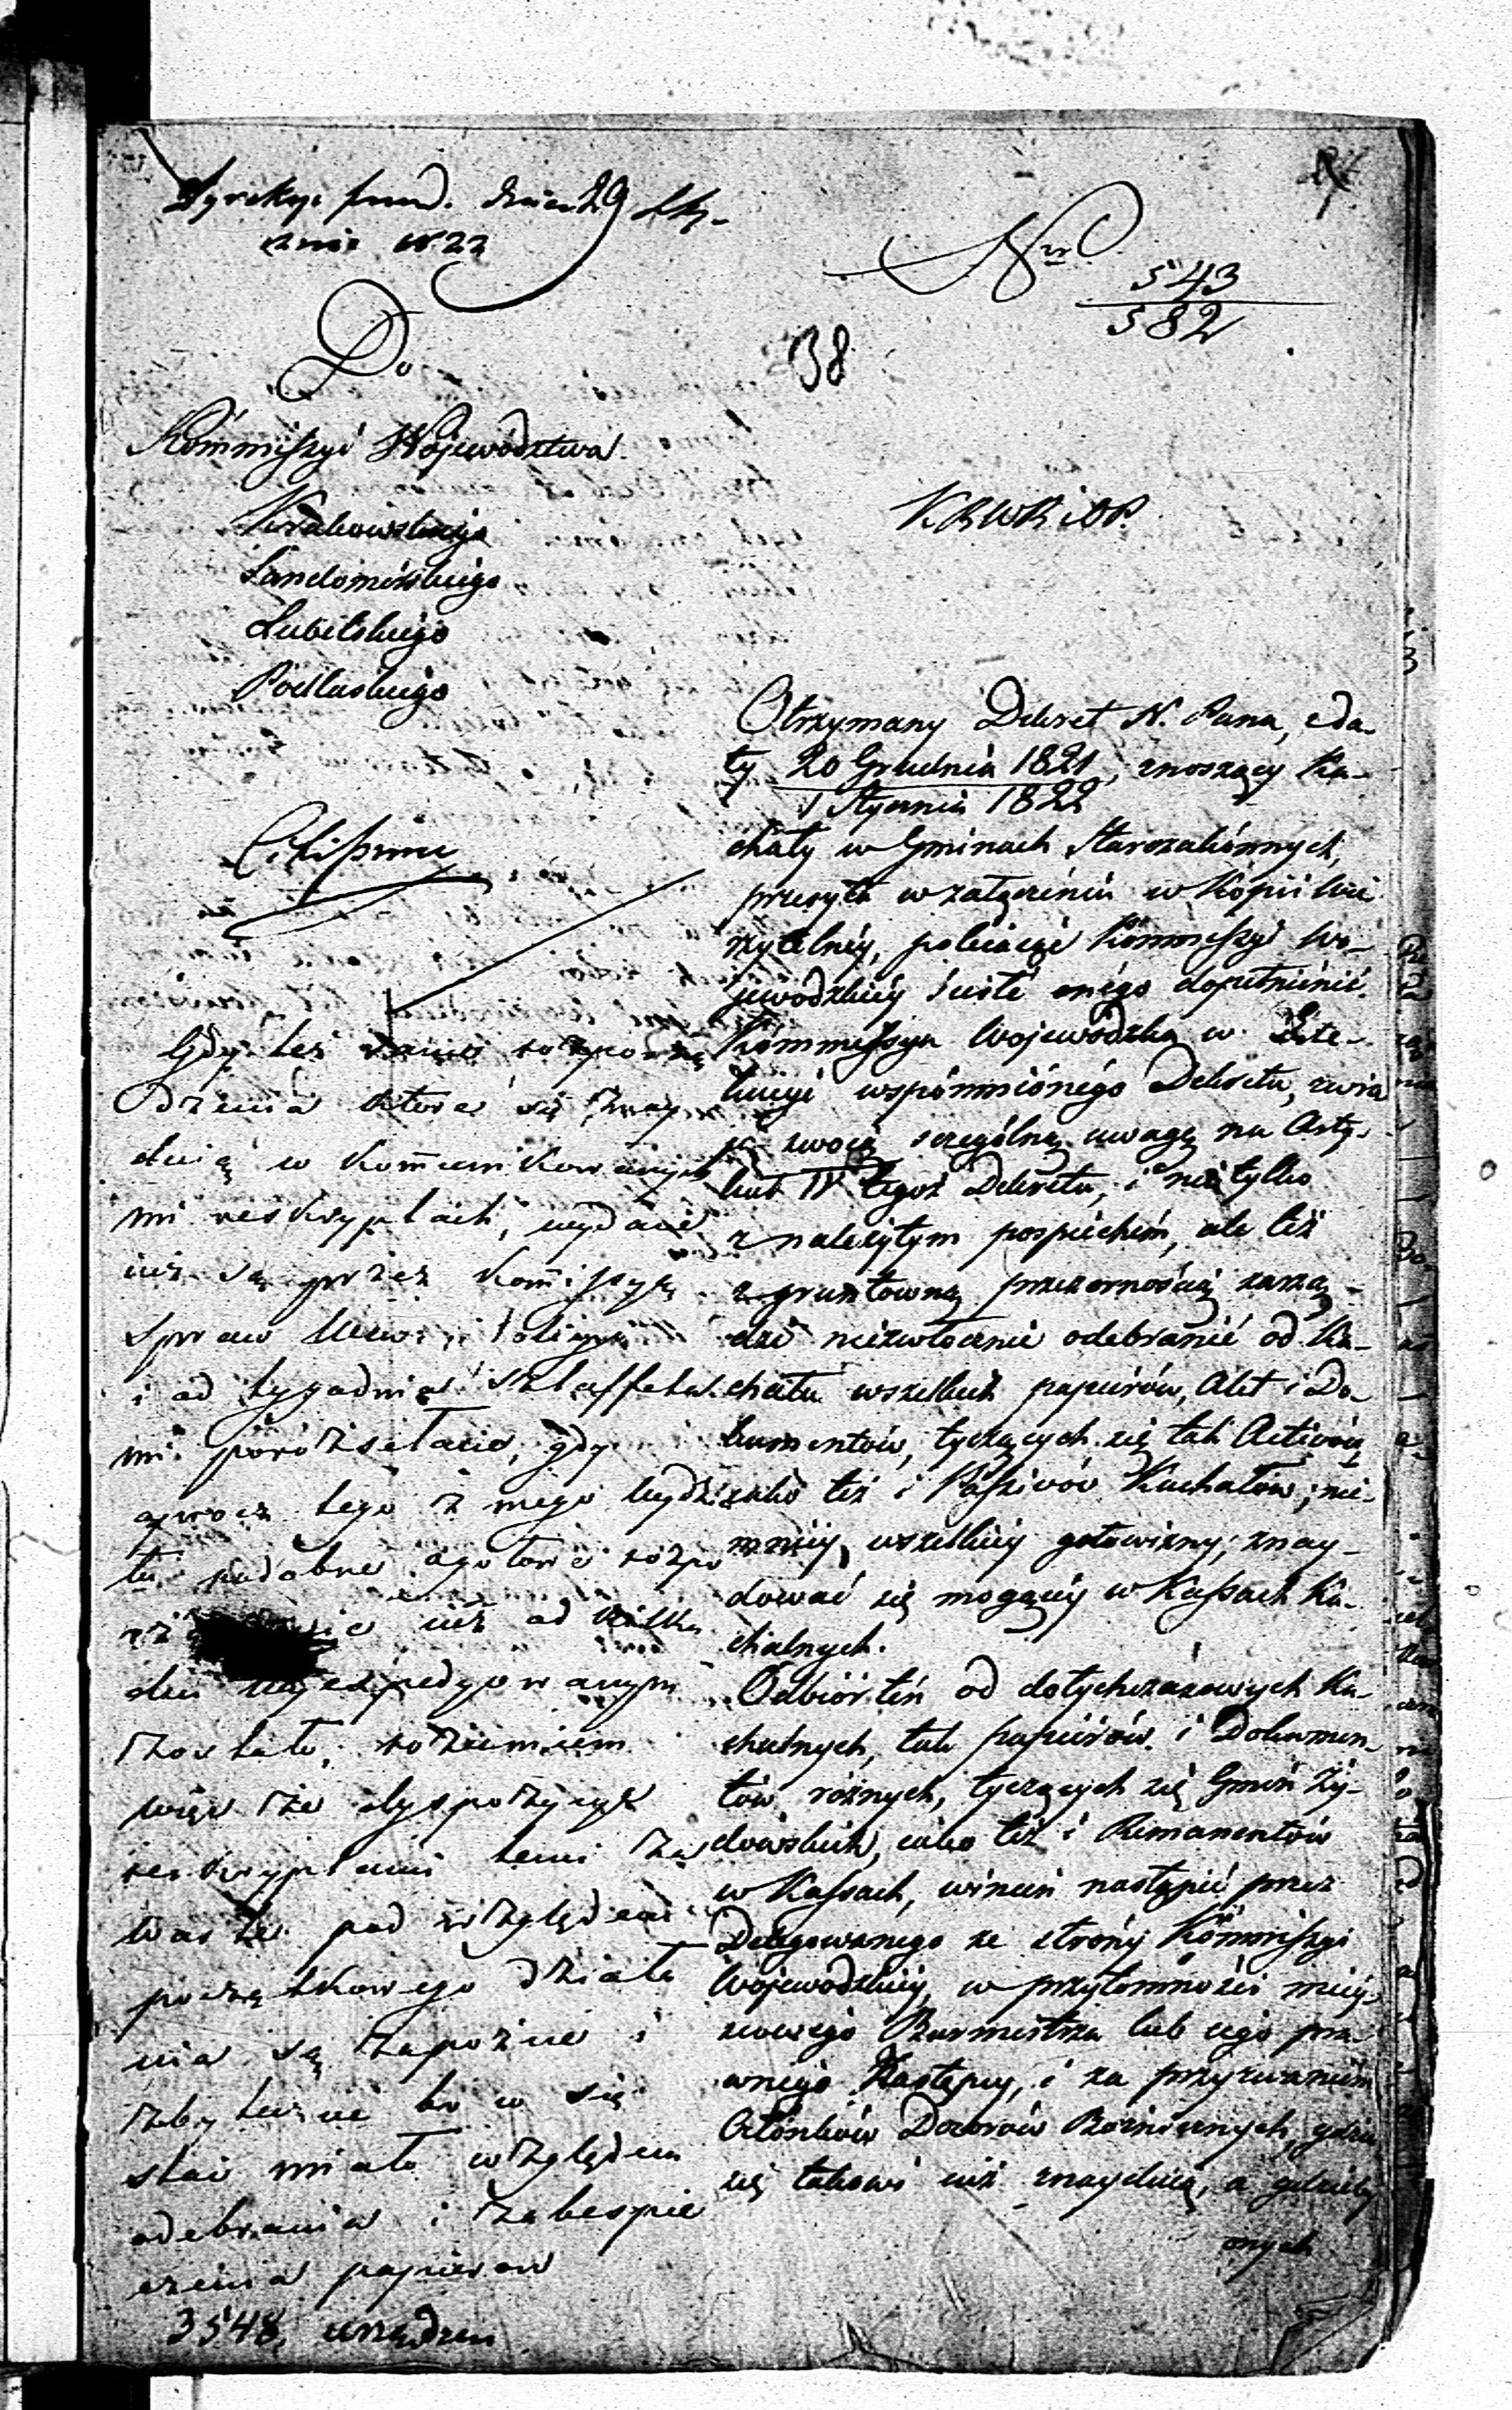 Dyrekcyi fund. dnia 29 Sty-
cznia 1822
Nro 543
582
38
Do
Kommissyi Województwa
Krakowskiego
Sandomirskiego
Lubelskiego
Podlaskiego
KRWRiOP.
Citissime
Otrzymany Dekret N. Pana, z da-
ty 20 Grudnia 1821, znoszący Ka-
1 Stycznia 1822
chały w Gminach Starozakonnych,
przesyła w załączeniu w Kopii wie
rzytelnéy, polecając Kommissyi Wo-
jewódzkiéy ścisłe onégo dopełnienié.
Kommissya Wojewódzka w Exe-
kucyi wspomnionégo Dekretu, zwró
ci swoią szczególną uwagę na Arty-
kuł IV tegoż Dekretu, i nie tylko
z należytym pospiechém, ale też
z gruntowną przezornością zarzą-
dzi niezwłocznie odebranié od Ka-
chału wszelkich papiérów, Akt i Do-
kumentów, tyczących się tak Activów
jako też i Passivów Kachałów; nie-
mniéy, wszelkiéy gotowizny, znay-
dować się mogącéy w Kassach Ka-
chalnych.
Odbiór tén od dotychczasowych Ka-
chalnych, tak papiérów i Dokumen-
tów różnych, tyczących się Gmin Ży-
dowskich, iako téż i Remanentów
w Kassach, winién nastąpić przez
Delegowanego ze strony Kommissyi
Wojewódzkiéy, w przytomności miéy-
scowego Burmistrza lub iego pra-
wnego Zastępcy, i za przyzwaniem
Członków Dozorów Bóżniczych, gdzie
się takowi iuż znayduią, a gdzieby
onych
Gdy też same rozporzą
dzenia które się znay
duią w kommunikowanych
mi reskryptach, wydane
iuż są przez Kommissyę
Spraw Wew: i Policyi
i od tygodnia sztaffeta
mi porozsełane, gdy
oprocz tego z mego wydzia
łu podobne ogolne rozpo
iuż od kilku
dni wyexpedyowanym
zostało, rozumiem
więc że dyspozycye
reskryptami temi za
warte pod względem
początkowego działa
nia są zapozne i
zbyteczne bo w się
stać miało względem
odebrania i zabespie
czenia papierow
3548 urządzen